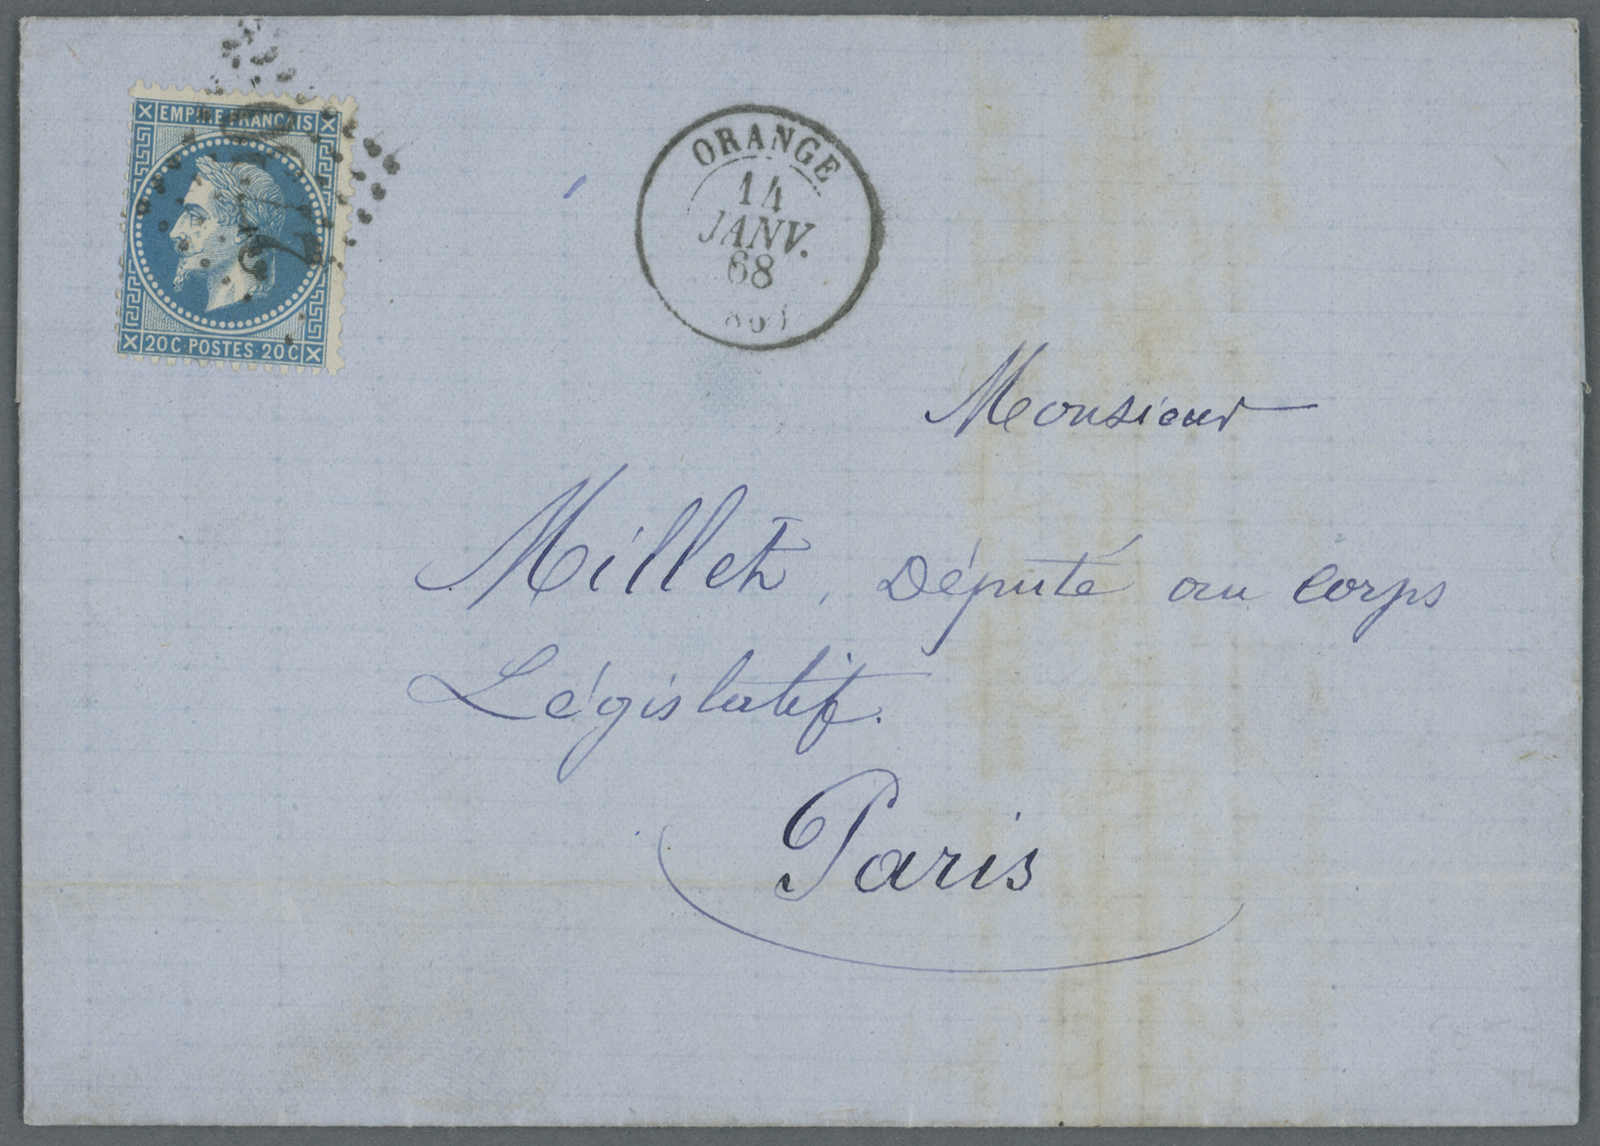 EMPIRE FRANÇAIS
20C POSTES 20C
ORANGE
14
JANV.
68
Monsieur
Millet, Député au corps
Législatif.
Paris